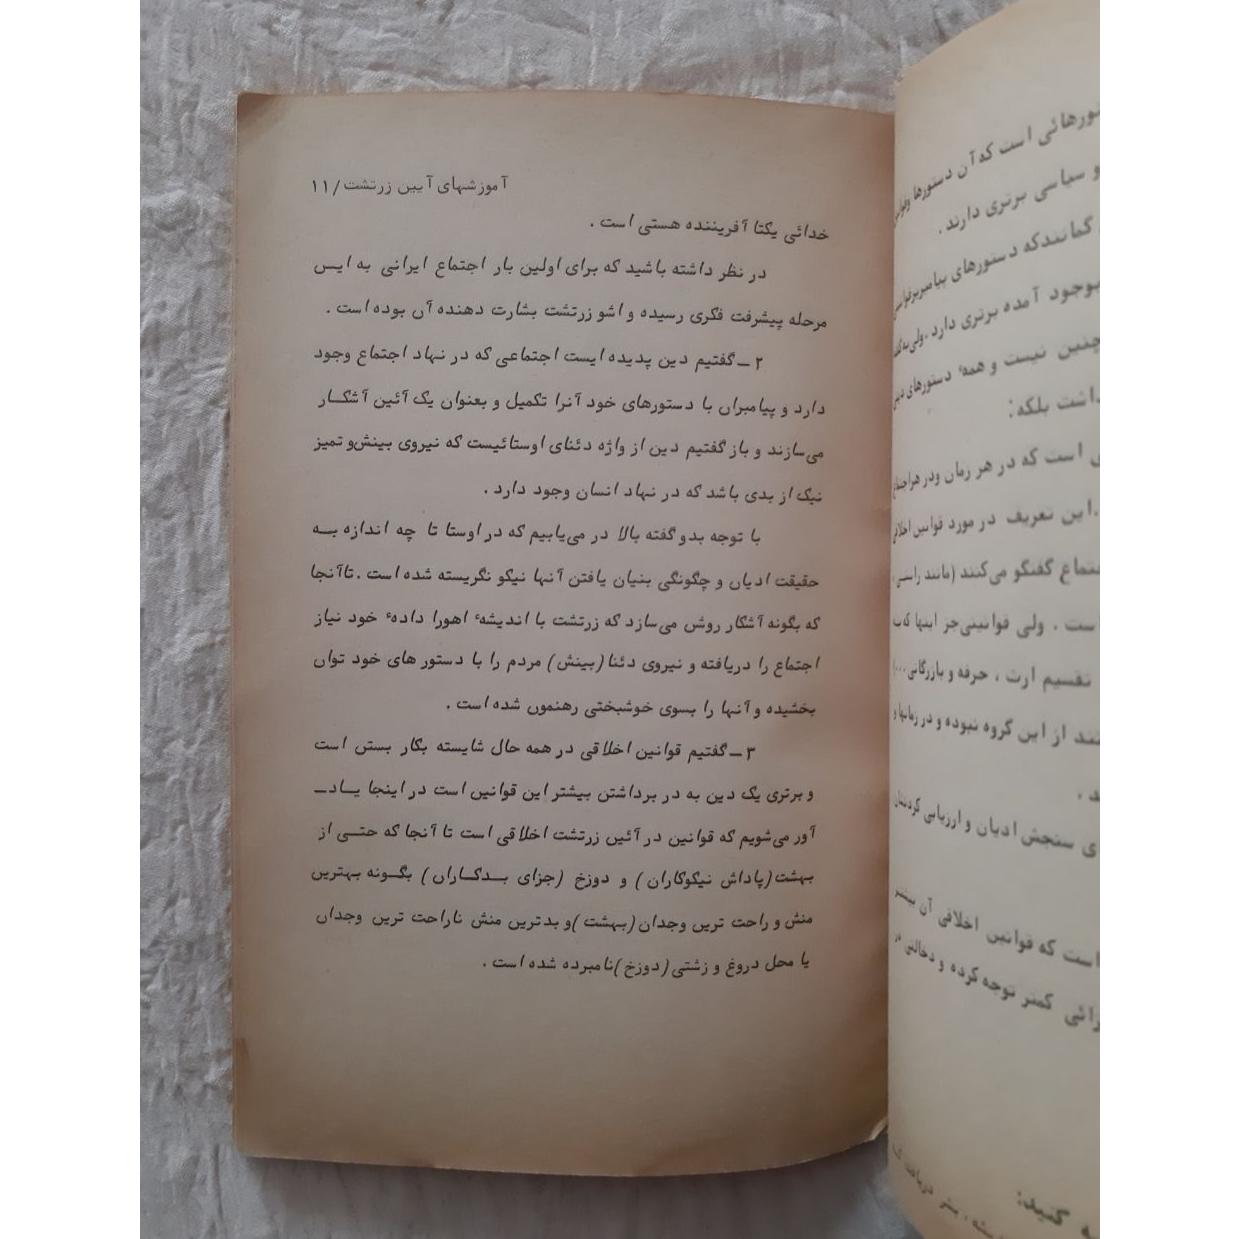 آموزشهای آیین زرتشت/۱۱
خدائی یکتا آفریننده هستی است .
در نظر داشته باشید که برای اولین بار اجتماع ایرانی به ایــن
مرحله پیشرفت فکری رسیده و اشو زرتشت بشارت دهنده آن بوده است .
۲ــ گفتیم دین پدیده ایست اجتماعی که در نهاد اجتماع وجود
دارد و پیامبران با دستورهای خود آنرا تکمیل و بعنوان یک آئین آشکــار
می‌سازند و باز گفتیم دین از واژه دئنای اوستائیست که نیروی بینش‌و تمیز
نیک از بدی باشد که در نهاد انسان وجود دارد .
با توجه بدو گفته بالا در می‌یابیم که در اوستا تا چه اندازه بــه
حقیقت ادیان و چگونگی بنیان یافتن آنها نیکو نگریسته شده است . تاآنجا
که بگونه آشکار روشن می‌سازد که زرتشت با اندیشهٔ اهورا دادهٔ خود نیاز
اجتماع را دریافته و نیروی دئنا (بینش) مردم را با دستور های خود توان
بخشیده و آنها را بسوی خوشبختی رهنمون شده است .
۳ــ گفتیم قوانین اخلاقی در همه حال شایسته بکار بستن است
و برتری یک دین به در برداشتن بیشتر این قوانین است در اینجا یــادــ
آور می‌شویم که قوانین در آئین زرتشت اخلاقی است تا آنجا که حتــی از
بهشت (پاداش نیکوکاران ) و دوزخ (جزای بــدکــاران ) بگــونه بهترین
منش و راحت ترین وجدان (بهشت )و بدترین منش ناراحت ترین وجدان
یا محل دروغ و زشتی (دوزخ )نامبرده شده است .
است که آن دستورها
و سیاسی برتری دارند .
گمانندکه دستورهای
بوجود آمده برتری دارد .
نیست و همهٔ دستورهای
بلکه:
است که در هر زمان ودر
.این تعریف در مورد قوانین
گفتگو می‌کنند (مانند
. ولی قوانینی‌جز اینها
تقسیم ارث ، حرفه و بازرگانی . . .)
از این گروه نبوده و در زمانها
سنجش ادیان و ارزیابی
است که قوانین اخلاقی آن
کمتر توجه کرده و دخالتی در
کنید: